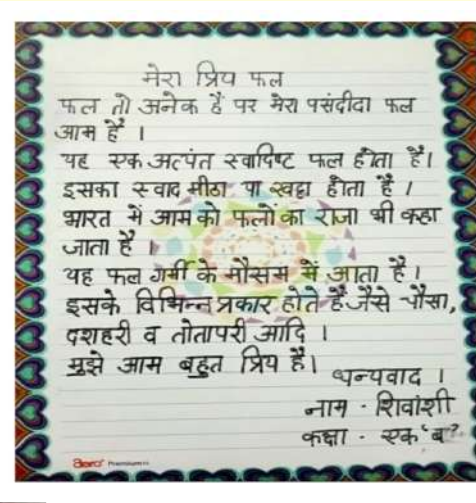 मेरा प्रिय फल
फल तो अनेक हैं पर मेरा पसंदीदा फल
आम है ।
यह एक अत्यंत स्वादिष्ट फल होता है।
इसका स्वाद मीठा या खट्टा होता है ।
भारत में आम को फलों का राजा भी कहा
जाता है ।
यह फल गर्मी के मौसम में आता है ।
इसके विभिन्न प्रकार होते है जैसे चौसा,
दशहरी व तोतापरी आदि ।
मुझे आम बहुत प्रिय है।
धन्यवाद ।
नाम - शिवांशी
कक्षा - एक 'ब'